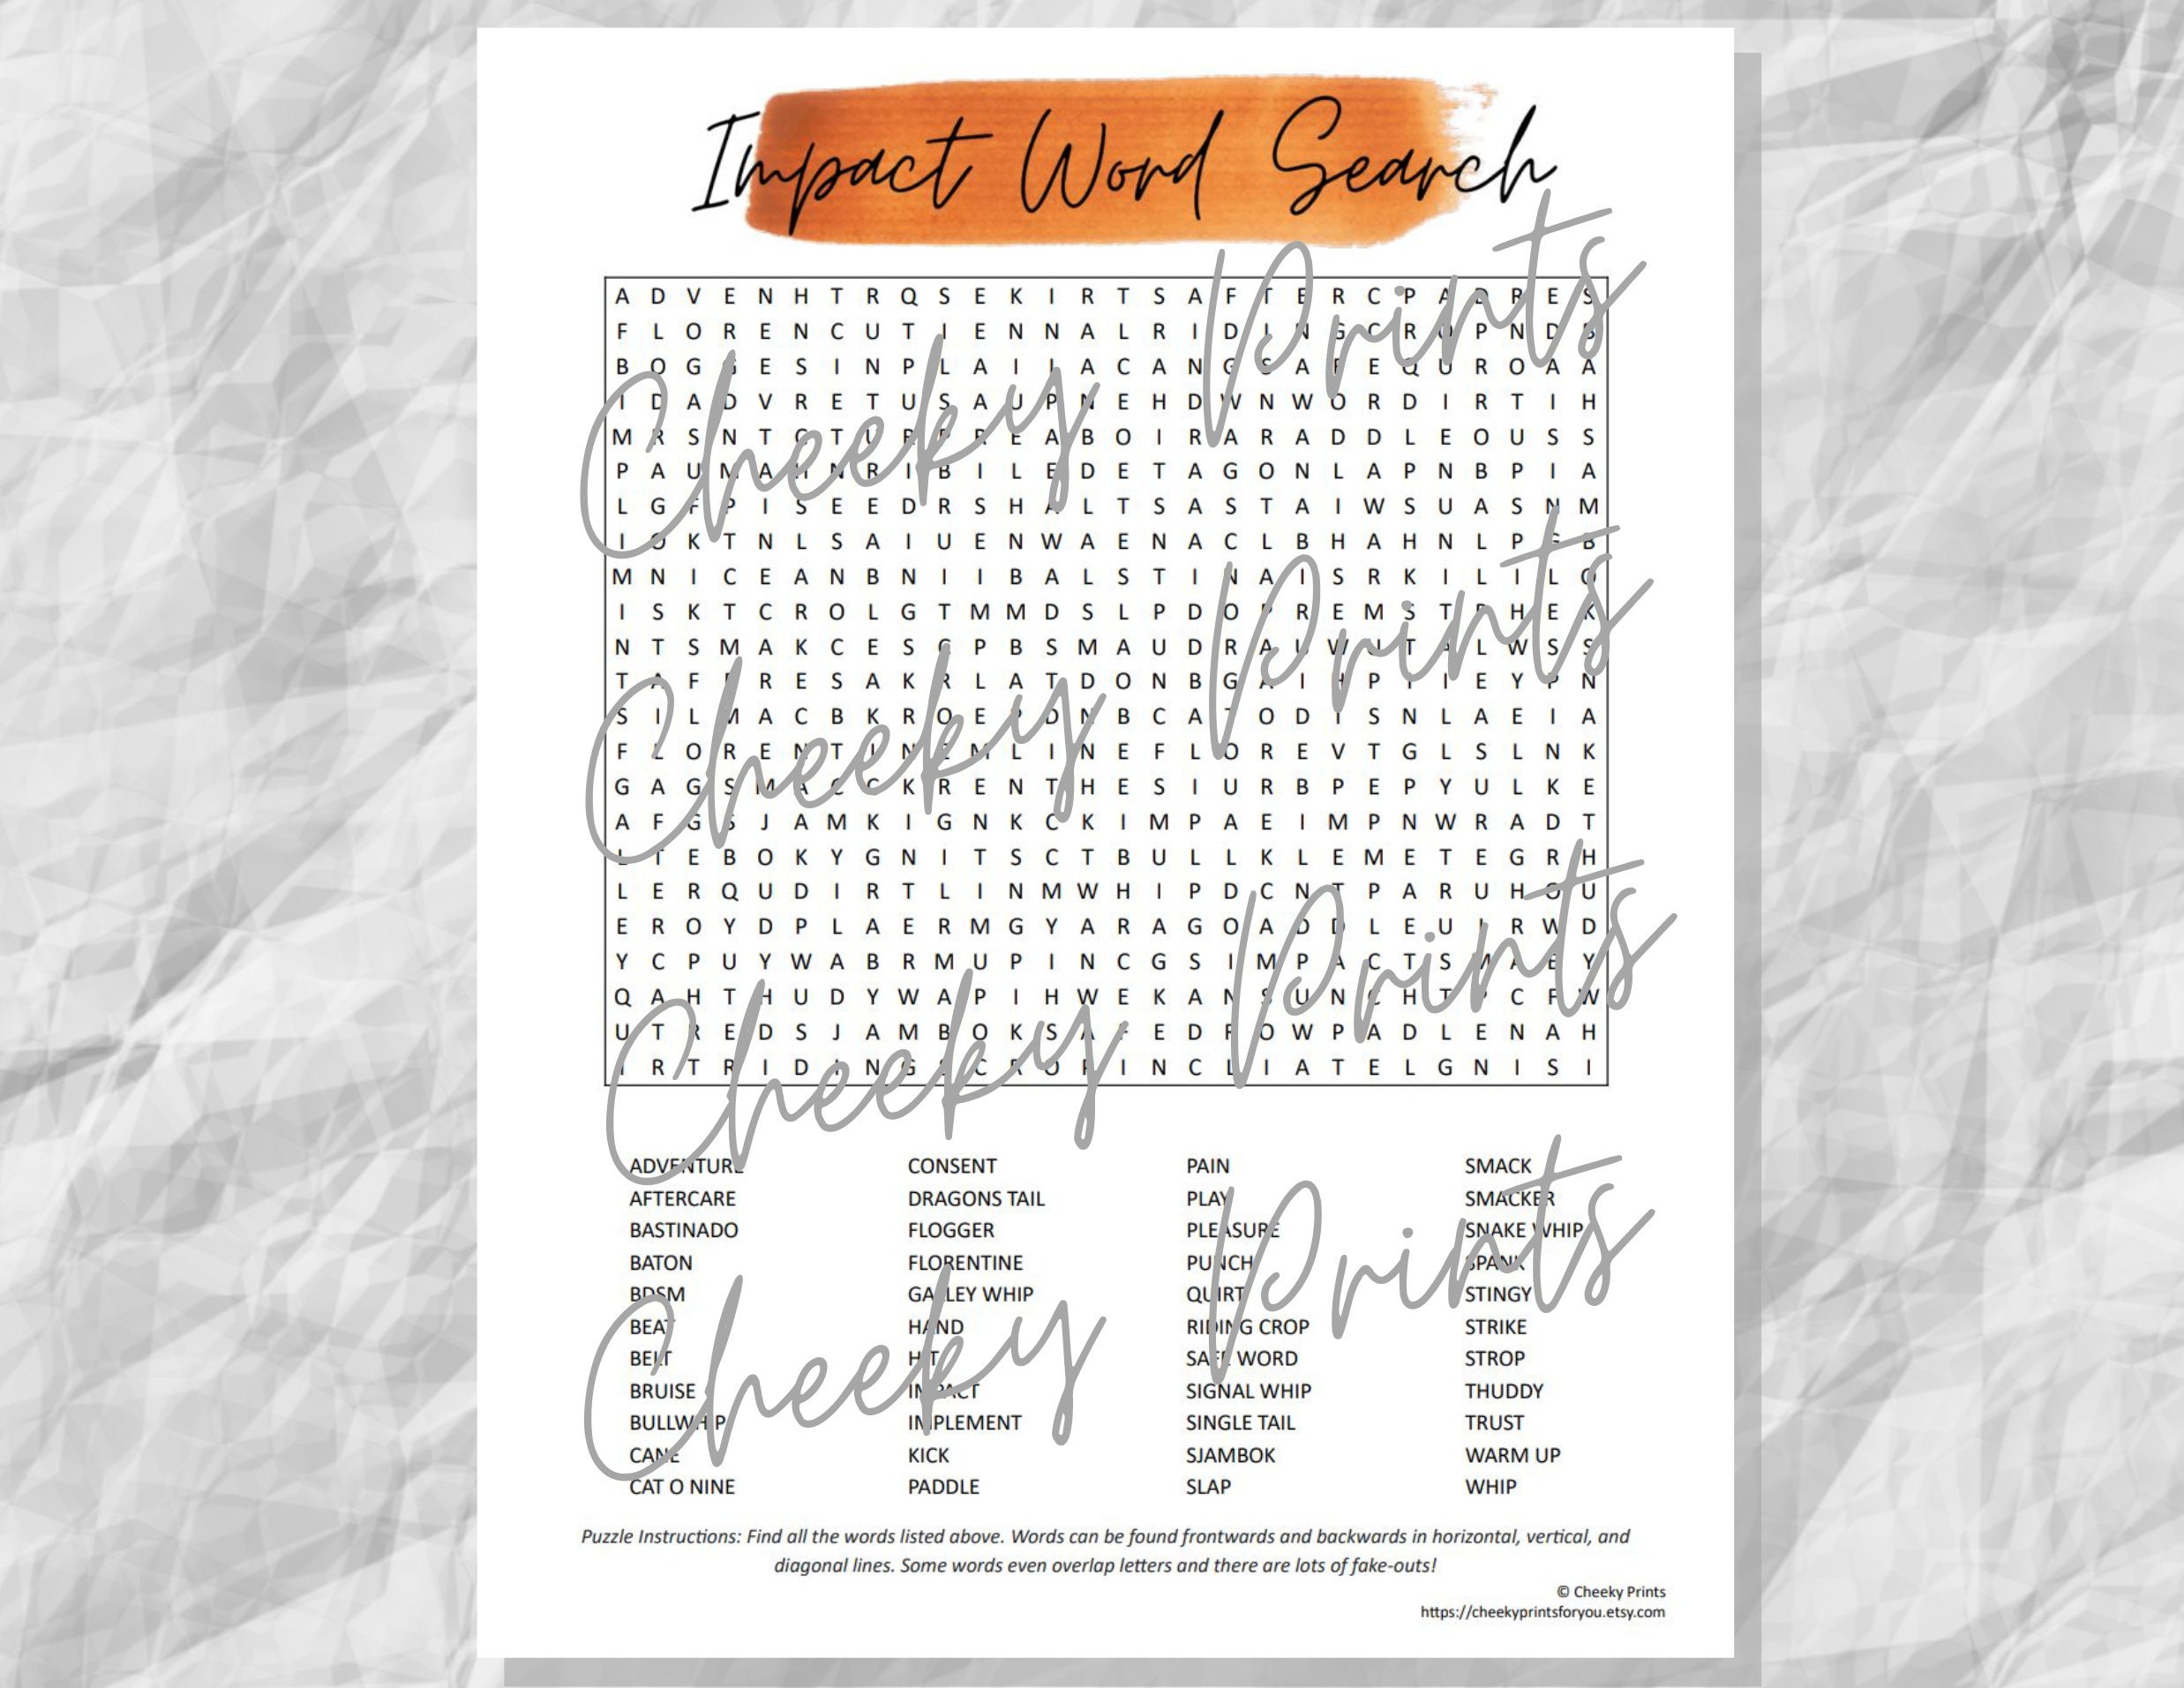 Impact Word Search
A D V E N H T R Q S E K I R T S A F T E R C P A D R E S
F L O R E N C U T I E N N A L R I D I N G C R O P N D B
B O G G E S I N P L A I L A C A N G S A F E Q U R O A A
I D A D V R E T U S A U P N E H D W N W O R D I R T I H
M R S N T O T U R P R E A B O I R A R A D D L E O U S S
P A U M A H N R I B I L E D E T A G O N L A P N B P I A
L G F P I S E E D R S H A L T S A S T A I W S U A S N M
I O K T N L S A I U E N W A E N A C L B H A H N L P G B
M N I C E A N B N I I B A L S T I N A I S R K I L I L O
I S K T C R O L G T M M D S L P D O P R E M S T P H E K
N T S M A K C E S C P B S M A U D R A U W N T A L W S S
T A F R E S A K R L A T D O N B G A I H P T I E Y P N
S I L M A C B K R O E P D N B C A T O D I S N L A E I A
F L O R E N T I N E M L I N E F L O R E V T G L S L N K
G A G S M A C C K R E N T H E S I U R B P E P Y U L K E
A F G S J A M K I G N K C K I M P A E I M P N W R A D T
L T E B O K Y G N I T S C T B U L L K L E M E T E G R H
L E R Q U D I R T L I N M W H I P D C N T P A R U H O U
E R O Y D P L A E R M G Y A R A G O A D D L E U I R W D
Y C P U Y W A B R M U P I N C G S I M P A C T S M A E Y
Q A H T H U D Y W A P I H W E K A N S U N C H T P C F W
U T R E D S J A M B O K S A F E D R O W P A D L E N A H
R T R I D I N G S C R O P I N C L I A T E L G N I S I
ADVENTURE CONSENT PAIN SMACK
AFTERCARE DRAGONS TAIL PLAY SMACKER
BASTINADO FLOGGER PLEASURE SNAKE WHIP
BATON FLORENTINE PUNCH SPANK
BDSM GALLEY WHIP QUIRT STINGY
BEAT HAND RIDING CROP STRIKE
BELT HIT SAFE WORD STROP
BRUISE IMPACT SIGNAL WHIP THUDDY
BULLWHIP IMPLEMENT SINGLE TAIL TRUST
CANE KICK SJAMBOK WARM UP
CAT O NINE PADDLE SLAP WHIP
Puzzle Instructions: Find all the words listed above. Words can be found frontwards and backwards in horizontal, vertical, and
diagonal lines. Some words even overlap letters and there are lots of fake-outs!
© Cheeky Prints
https://cheekyprintsforyou.etsy.com
Cheeky Prints
Cheeky Prints
Cheeky Prints
Cheeky Prints